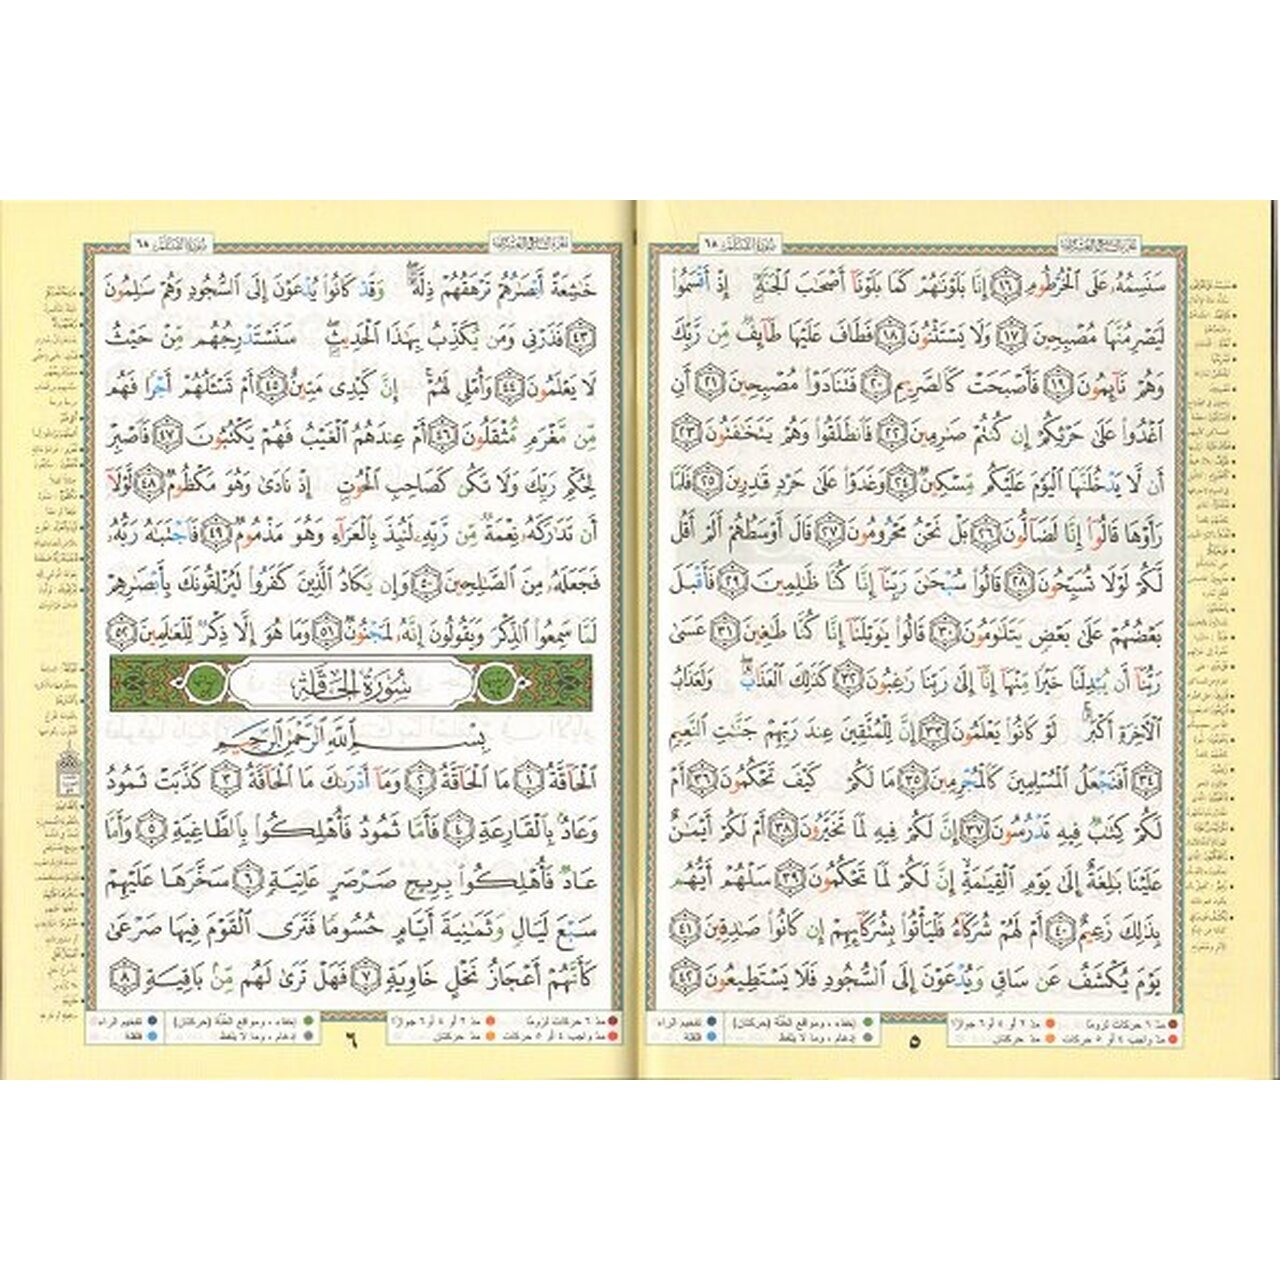 سَنَسِمُهُۥ عَلَى ٱلۡخُرۡطُومِ ١٦ إِنَّا بَلَوۡنَٰهُمۡ كَمَا بَلَوۡنَآ أَصۡحَٰبَ ٱلۡجَنَّةِ إِذۡ أَقۡسَمُواْ
لَيَصۡرِمُنَّهَا مُصۡبِحِينَ ١٧ وَلَا يَسۡتَثۡنُونَ ١٨ فَطَافَ عَلَيۡهَا طَآئِفٞ مِّن رَّبِّكَ
وَهُمۡ نَآئِمُونَ ١٩ فَأَصۡبَحَتۡ كَٱلصَّرِيمِ ٢٠ فَتَنَادَوۡاْ مُصۡبِحِينَ ٢١ أَنِ
ٱغۡدُواْ عَلَىٰ حَرۡثِكُمۡ إِن كُنتُمۡ صَٰرِمِينَ ٢٢ فَٱنطَلَقُواْ وَهُمۡ يَتَخَٰفَتُونَ ٢٣
أَن لَّا يَدۡخُلَنَّهَا ٱلۡيَوۡمَ عَلَيۡكُم مِّسۡكِينٞ ٢٤ وَغَدَوۡاْ عَلَىٰ حَرۡدٖ قَٰدِرِينَ ٢٥ فَلَمَّا
رَأَوۡهَا قَالُوٓاْ إِنَّا لَضَآلُّونَ ٢٦ بَلۡ نَحۡنُ مَحۡرُومُونَ ٢٧ قَالَ أَوۡسَطُهُمۡ أَلَمۡ أَقُل
لَّكُمۡ لَوۡلَا تُسَبِّحُونَ ٢٨ قَالُواْ سُبۡحَٰنَ رَبِّنَآ إِنَّا كُنَّا ظَٰلِمِينَ ٢٩ فَأَقۡبَلَ
بَعۡضُهُمۡ عَلَىٰ بَعۡضٖ يَتَلَٰوَمُونَ ٣٠ قَالُواْ يَٰوَيۡلَنَآ إِنَّا كُنَّا طَٰغِينَ ٣١ عَسَىٰ
رَبُّنَآ أَن يُبۡدِلَنَا خَيۡرٗا مِّنۡهَآ إِنَّآ إِلَىٰ رَبِّنَا رَٰغِبُونَ ٣٢ كَذَٰلِكَ ٱلۡعَذَابُ وَلَعَذَابُ
ٱلۡأٓخِرَةِ أَكۡبَرُ لَوۡ كَانُواْ يَعۡلَمُونَ ٣٣ إِنَّ لِلۡمُتَّقِينَ عِندَ رَبِّهِمۡ جَنَّٰتِ ٱلنَّعِيمِ
٣٤ أَفَنَجۡعَلُ ٱلۡمُسۡلِمِينَ كَٱلۡمُجۡرِمِينَ ٣٥ مَا لَكُمۡ كَيۡفَ تَحۡكُمُونَ ٣٦ أَمۡ
لَكُمۡ كِتَٰبٞ فِيهِ تَدۡرُسُونَ ٣٧ إِنَّ لَكُمۡ فِيهِ لَمَا تَخَيَّرُونَ ٣٨ أَمۡ لَكُمۡ أَيۡمَٰنٌ
عَلَيۡنَا بَٰلِغَةٌ إِلَىٰ يَوۡمِ ٱلۡقِيَٰمَةِ إِنَّ لَكُمۡ لَمَا تَحۡكُمُونَ ٣٩ سَلۡهُمۡ أَيُّهُم
بِذَٰلِكَ زَعِيمٌ ٤٠ أَمۡ لَهُمۡ شُرَكَآءُ فَلۡيَأۡتُواْ بِشُرَكَآئِهِمۡ إِن كَانُواْ صَٰدِقِينَ ٤١
يَوۡمَ يُكۡشَفُ عَن سَاقٖ وَيُدۡعَوۡنَ إِلَى ٱلسُّجُودِ فَلَا يَسۡتَطِيعُونَ ٤٢
مدّ ٦ حركات لزوماً مدّ ٢ أو ٤ أو ٦ جوازاً
مدّ واجب ٤ أو ٥ حركات مدّ حركتان
إخفاء، ومواقع الغُنَّة (حركتان) تفخيم الراء
إدغام، وما لا يُلفَظ قلقلة
٥
خَٰشِعَةً أَبۡصَٰرُهُمۡ تَرۡهَقُهُمۡ ذِلَّةٞ وَقَدۡ كَانُواْ يُدۡعَوۡنَ إِلَى ٱلسُّجُودِ وَهُمۡ سَٰلِمُونَ
٤٣ فَذَرۡنِي وَمَن يُكَذِّبُ بِهَٰذَا ٱلۡحَدِيثِ سَنَسۡتَدۡرِجُهُم مِّنۡ حَيۡثُ
لَا يَعۡلَمُونَ ٤٤ وَأُمۡلِي لَهُمۡ إِنَّ كَيۡدِي مَتِينٌ ٤٥ أَمۡ تَسۡـَٔلُهُمۡ أَجۡرٗا فَهُم
مِّن مَّغۡرَمٖ مُّثۡقَلُونَ ٤٦ أَمۡ عِندَهُمُ ٱلۡغَيۡبُ فَهُمۡ يَكۡتُبُونَ ٤٧ فَٱصۡبِرۡ
لِحُكۡمِ رَبِّكَ وَلَا تَكُن كَصَاحِبِ ٱلۡحُوتِ إِذۡ نَادَىٰ وَهُوَ مَكۡظُومٞ ٤٨ لَّوۡلَآ
أَن تَدَٰرَكَهُۥ نِعۡمَةٞ مِّن رَّبِّهِۦ لَنُبِذَ بِٱلۡعَرَآءِ وَهُوَ مَذۡمُومٞ ٤٩ فَٱجۡتَبَٰهُ رَبُّهُۥ
فَجَعَلَهُۥ مِنَ ٱلصَّٰلِحِينَ ٥٠ وَإِن يَكَادُ ٱلَّذِينَ كَفَرُواْ لَيُزۡلِقُونَكَ بِأَبۡصَٰرِهِمۡ
لَمَّا سَمِعُواْ ٱلذِّكۡرَ وَيَقُولُونَ إِنَّهُۥ لَمَجۡنُونٞ ٥١ وَمَا هُوَ إِلَّا ذِكۡرٞ لِّلۡعَٰلَمِينَ ٥٢
سُورَةُ الحَاقَّةِ
بِسۡمِ ٱللَّهِ ٱلرَّحۡمَٰنِ ٱلرَّحِيمِ
ٱلۡحَآقَّةُ ١ مَا ٱلۡحَآقَّةُ ٢ وَمَآ أَدۡرَىٰكَ مَا ٱلۡحَآقَّةُ ٣ كَذَّبَتۡ ثَمُودُ
وَعَادُۢ بِٱلۡقَارِعَةِ ٤ فَأَمَّا ثَمُودُ فَأُهۡلِكُواْ بِٱلطَّاغِيَةِ ٥ وَأَمَّا
عَادٞ فَأُهۡلِكُواْ بِرِيحٖ صَرۡصَرٍ عَاتِيَةٖ ٦ سَخَّرَهَا عَلَيۡهِمۡ
سَبۡعَ لَيَالٖ وَثَمَٰنِيَةَ أَيَّامٍ حُسُومٗا فَتَرَى ٱلۡقَوۡمَ فِيهَا صَرۡعَىٰ
كَأَنَّهُمۡ أَعۡجَازُ نَخۡلٍ خَاوِيَةٖ ٧ فَهَلۡ تَرَىٰ لَهُم مِّنۢ بَاقِيَةٖ ٨
مدّ ٦ حركات لزوماً مدّ ٢ أو ٤ أو ٦ جوازاً
مدّ واجب ٤ أو ٥ حركات مدّ حركتان
إخفاء، ومواقع الغُنَّة (حركتان) تفخيم الراء
إدغام، وما لا يُلفَظ قلقلة
٦